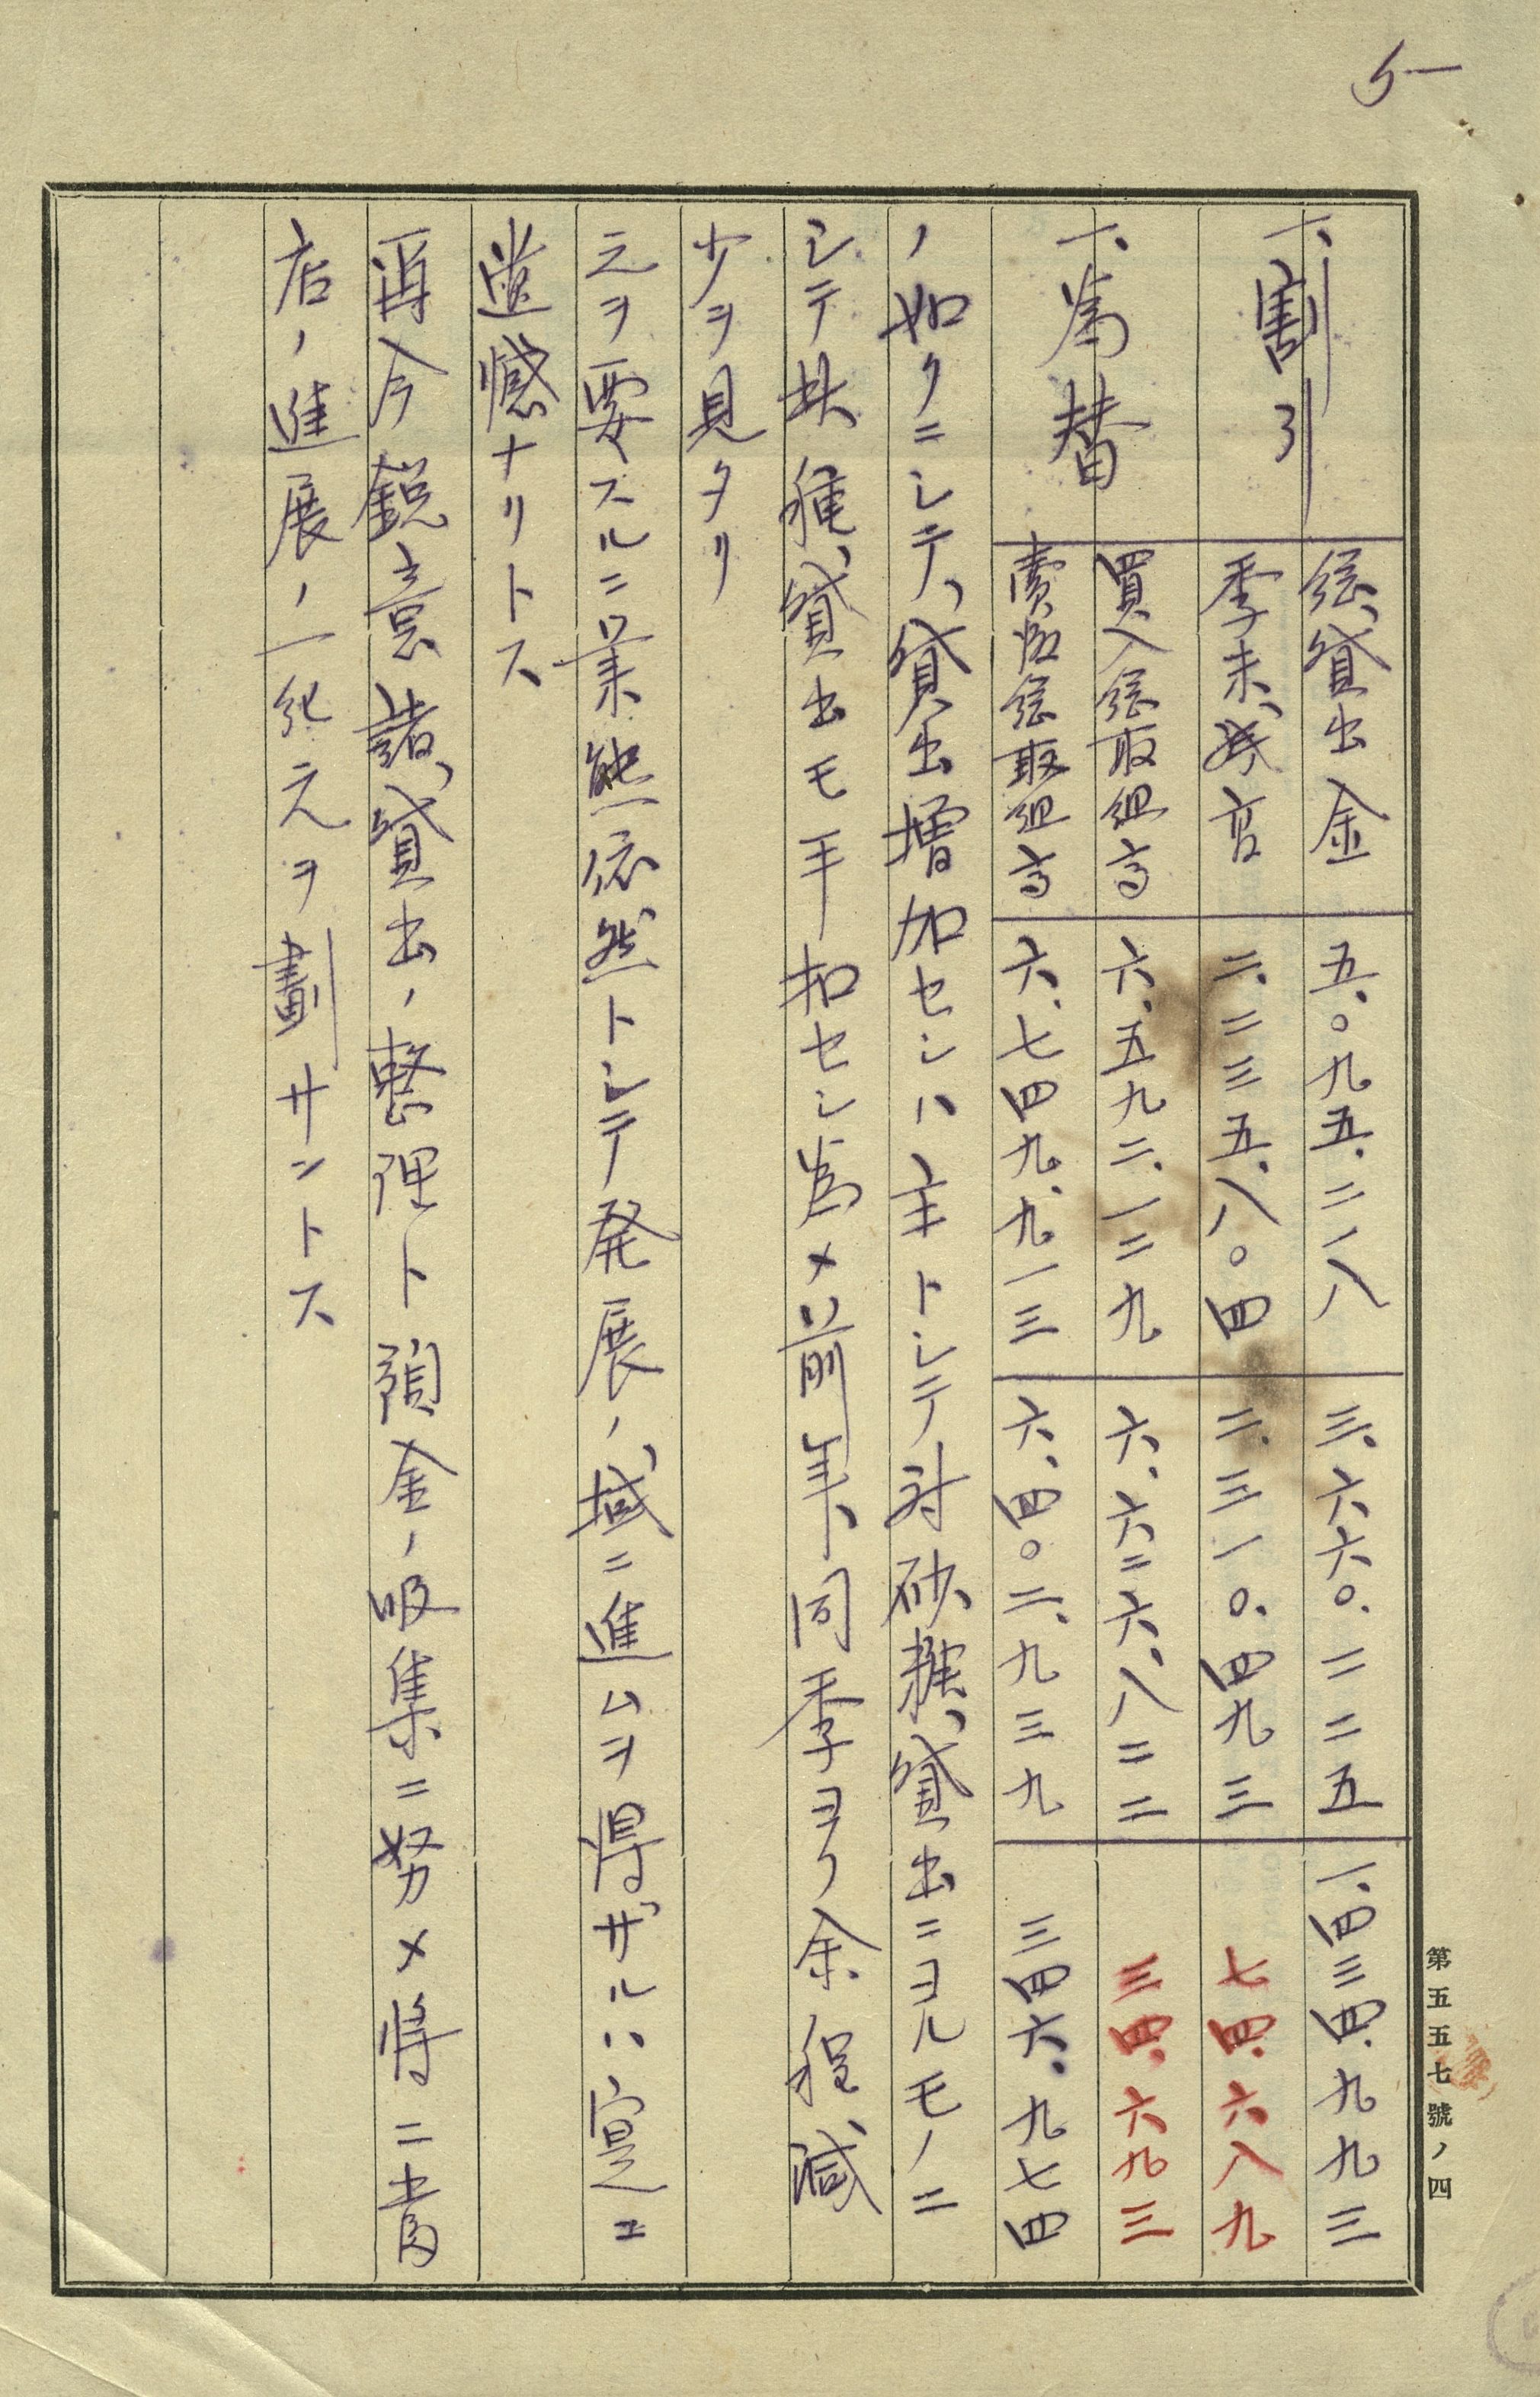 5
一、割引
総貸出金 五、〇九五、二一八 三、六六〇、二二五 一、四三四、九九三
季末残高 二、二三五、八〇四 二、三一〇、四九三 七四、六八九
一、為替
買入総取組高 六、五九二、一二九 六、六二六、八二二 三四、六九三
売為総取組高 六、七四九、九一三 六、四〇二、九三九 三四六、九七四
ノ如クニシテ、貸出増加セシハ主トシテ対砂糖貸出ニヨルモノニ
シテ此種貸出モ手扣セシ為メ前年同季ヨリ余程減
少ヲ見タリ
之ヲ要スルニ業態依然トシテ発展ノ域ニ進ムヲ得ザルハ寔ニ
遺憾ナリトス
再今鋭意諸貸出ノ整理ト預金ノ吸集ニ努メ将ニ当
店ノ進展ノ一紀元ヲ劃サントス
第五五七號ノ四